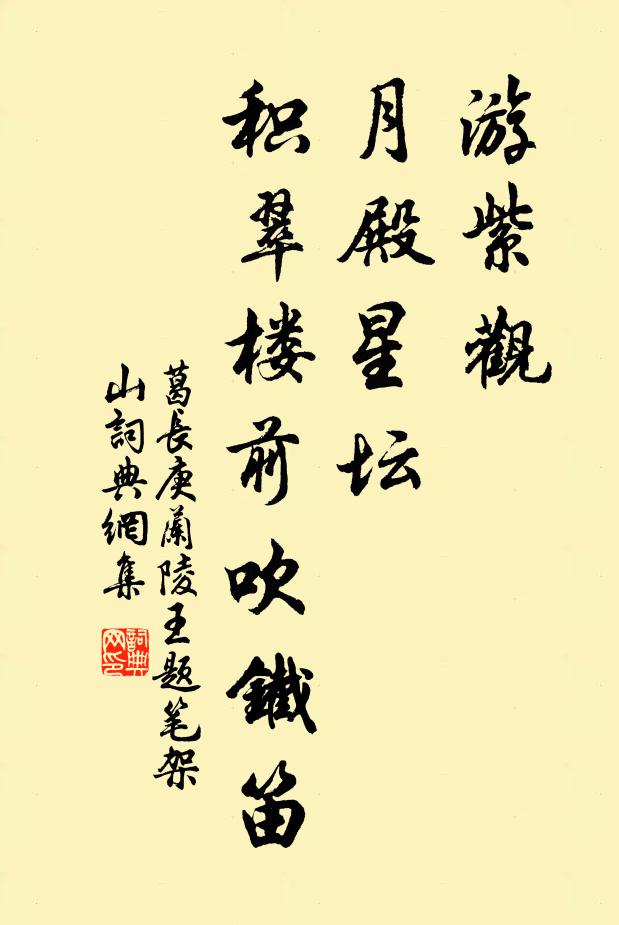 游紫觀
月殿星坛
积翠楼前吹鐵笛
葛長庚蘭陵王题笔架
山詞典網集
詞典
网印